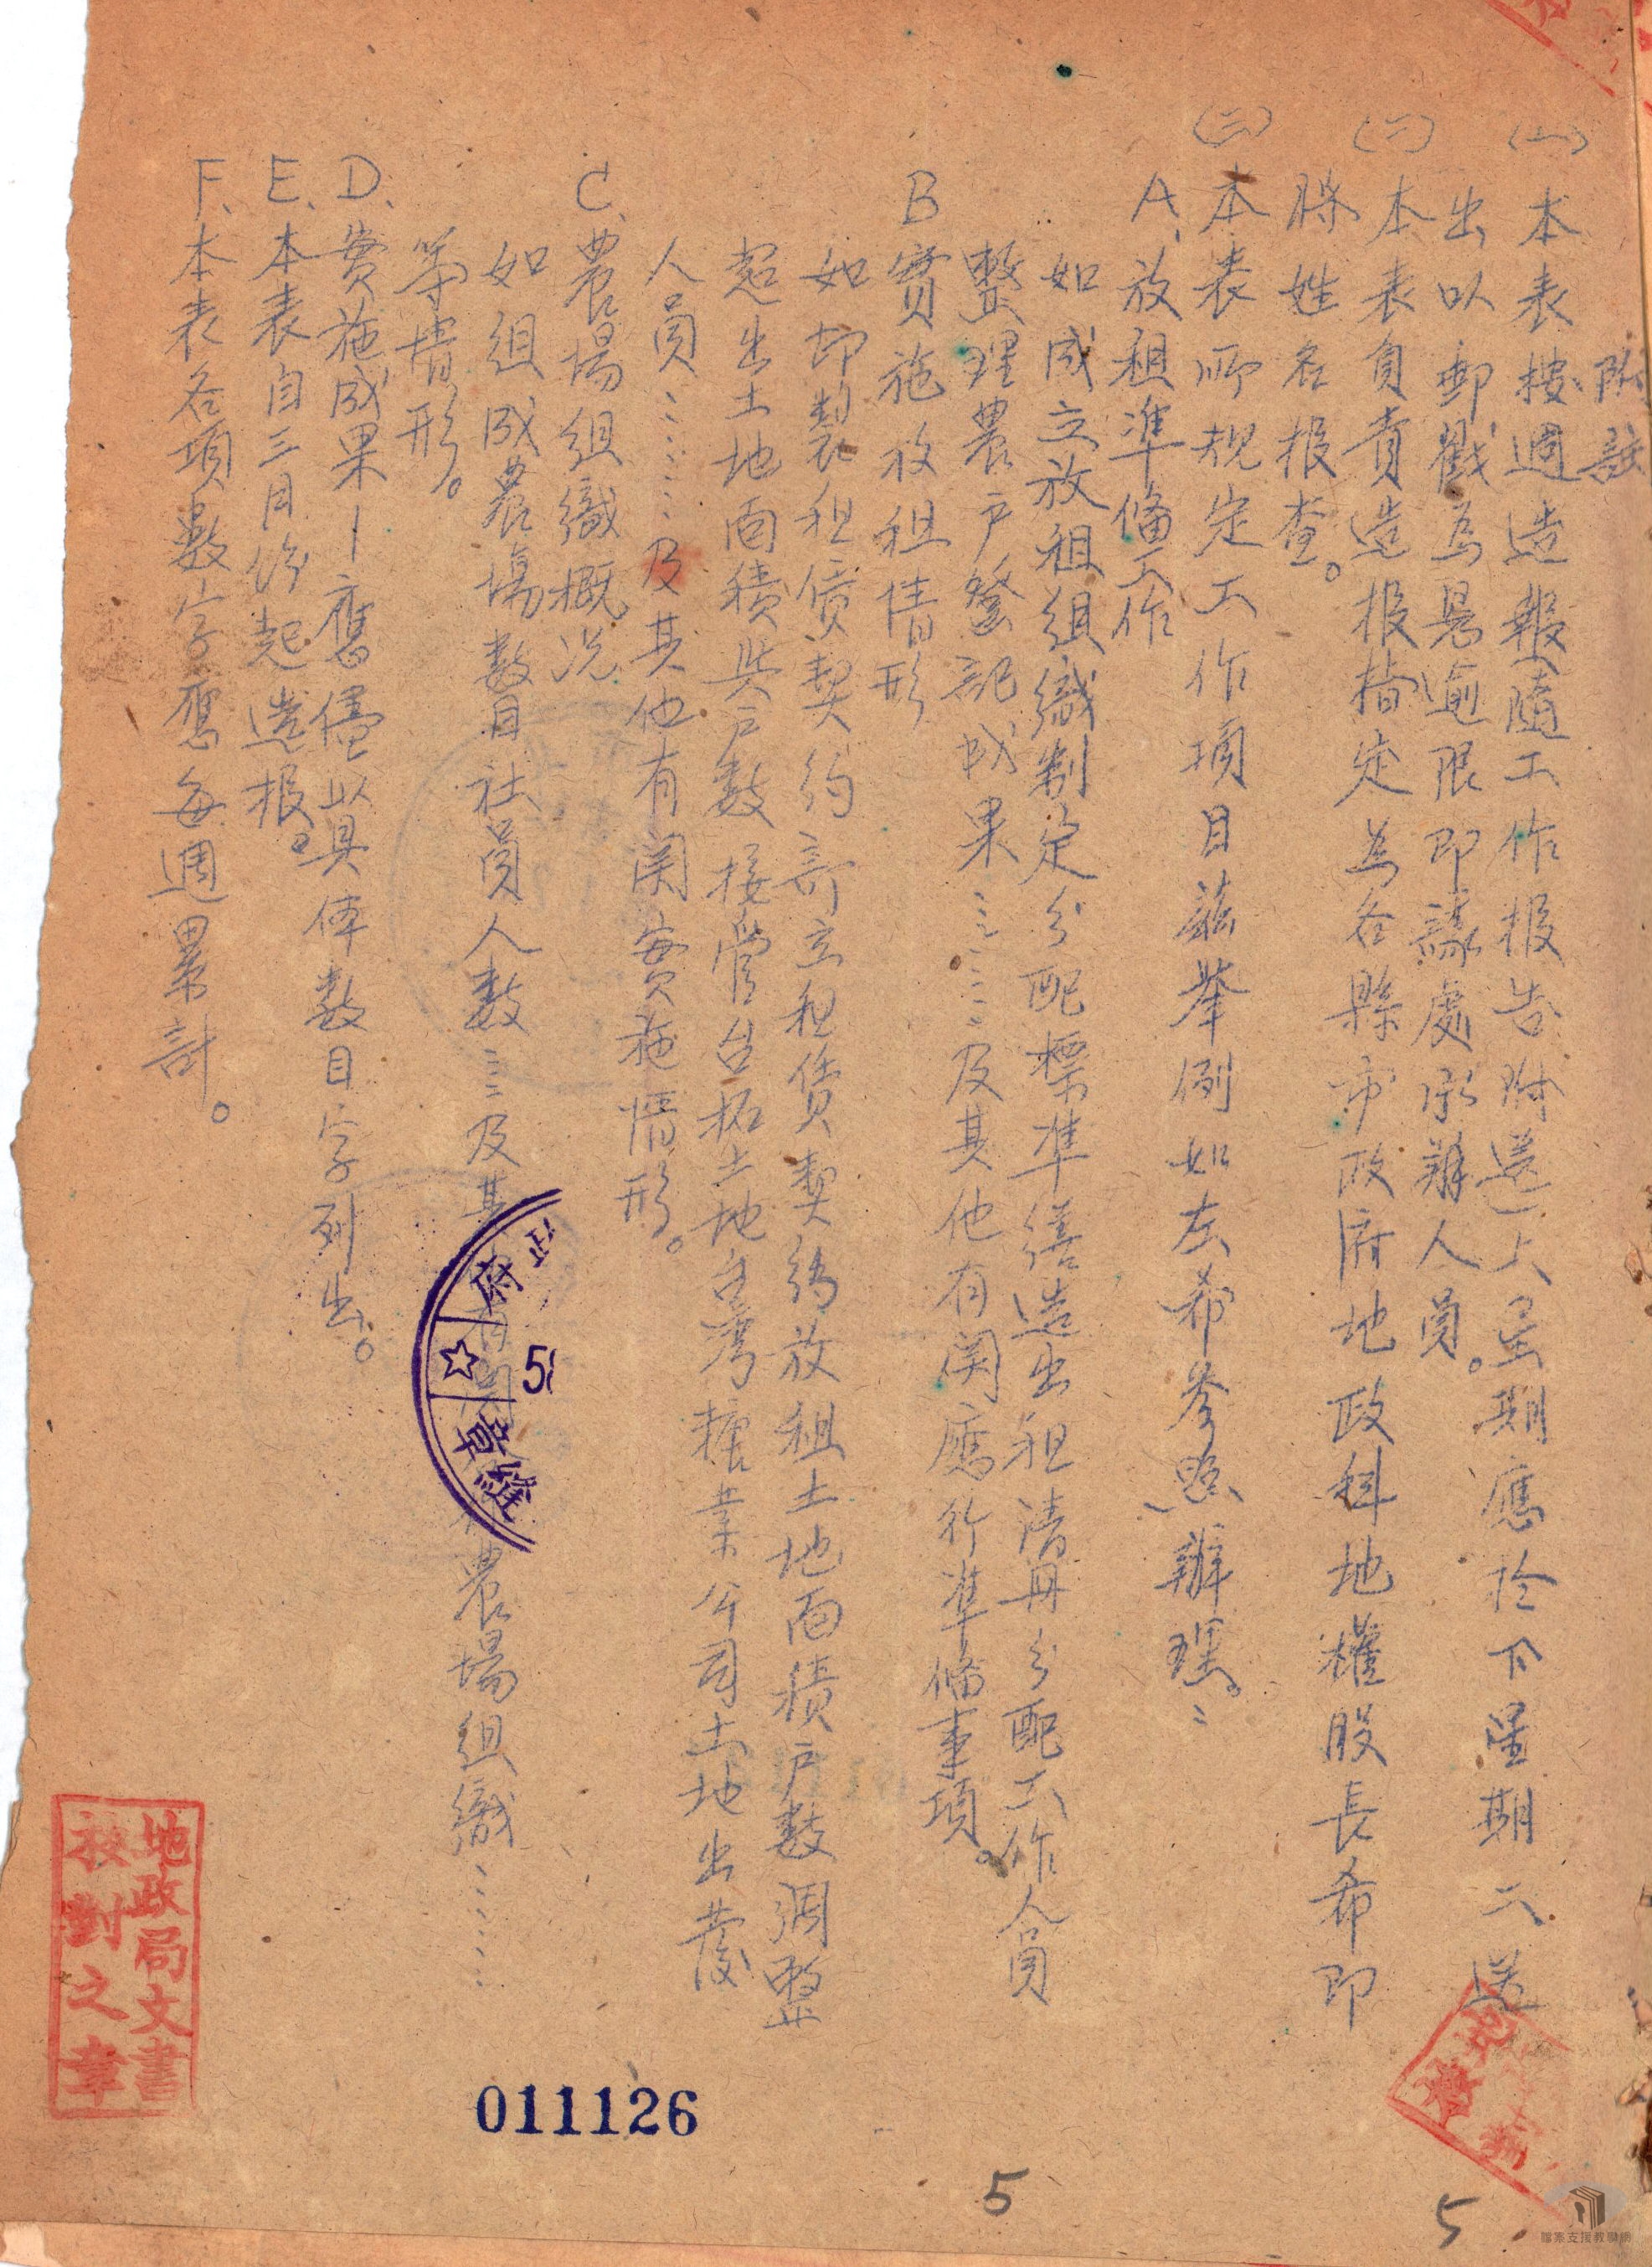 附註
(一)本表按週造報隨工作报告附送上星期應於下星期二送
出以郵戳為憑逾限即議處承辦人員。
(二)本表負責造报指定為各縣市政府地政科地權股長希即
将姓名报查。
(三)本表所規定工作項目茲舉例如左希參照辦理。:
A、放租準備工作
如成立放租組織制定分配標準繕造出租清册分配工作人員
整理農戶登記成果………及其他有関應行準俻事項。
B實施放租情形
如印製租賃契約訂立租賃契約放租土地面積戶數調整
超出土地面積與戶數接管台拓土地台灣糖業公司土地出發
人員………及其他有関實施情形。
C、農場組織概况
如組成農場数目社員人數……及其他有関 農場組織………
等情形。
D、實施成果—應儘以具体数目字列出。
E、本表自三月份起造报。
F、本表各項數字應每週累計。
府政
☆ 58
章縫
地政局文書
校對之章
011126
5
5
檔案支援教學網